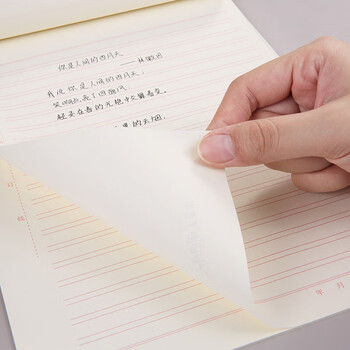 你是人间的四月天
——林徽因
我说你是人间的四月天,
笑响点亮了四面风
轻灵在春的光艳中交舞着变。
的云烟,
年 月